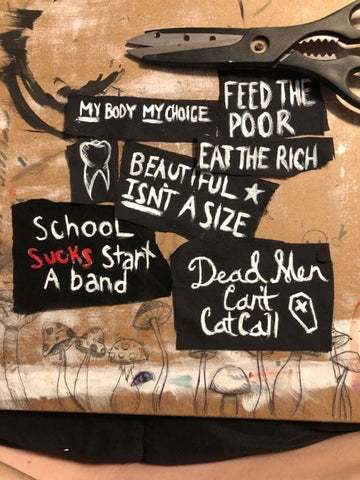 MY BODY MY CHOICE
FEED THE
POOR
EAT THE RICH
BEAUTIFUL
ISN'T A SIZE
SCHOOL
SUCKS Start
A band
Dead Men
Can't
CatCall